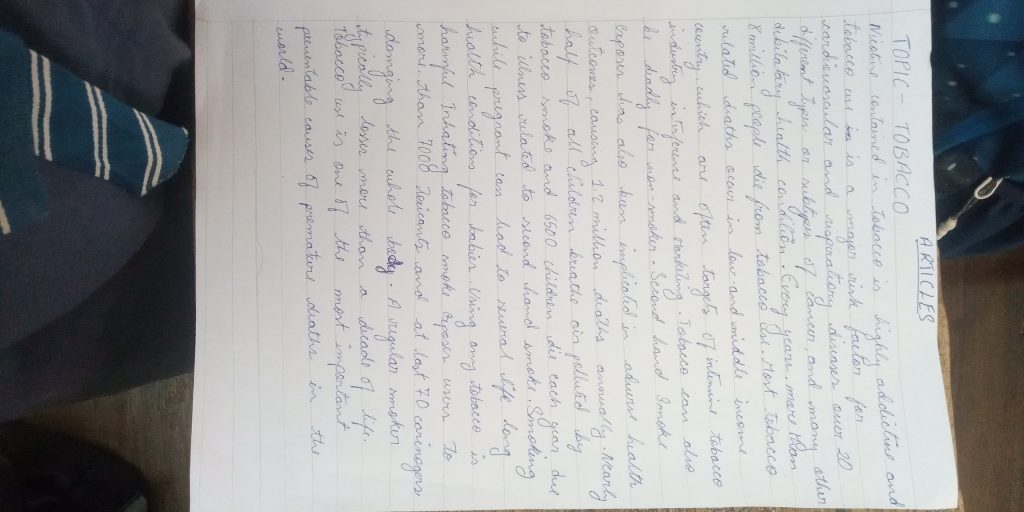 ARTICLES
TOPIC - TOBACCO
Nicotine contained in tobacco is highly addictive and
tobacco use is a major risk factor for
cardiovascular and respiratory diseases over 20
different types or subtypes of cancer and many other
debilatary health condition. Every years more than
8 million people die from tobacco use. Most tobacco
related deaths occur in low and middle income
country which are often targets of intennine tobacco
industry interference and markiting. Tobacco can also
be deadly for non-smoker. Second hand smoke
exposer has also been implicated in adverst health
outcomes, causing 1.2 million deaths annually. Nearly
half of all children breathe air polluted by
tobacco smoke and 6500 children die each year due
to illness related to second hand smoke. Smoking
while pregnant can lead to several life long
health conditions for babies. Using any tobacco is
harmful. Inhaling tobacco smoke exposer users To
more than 7000 Toxicants and at last 70 carinogers
damging the whole body. A regular smoker
typically loses more than a decade of life.
Tobacco use is one of the most important
preventable causes of premature deaths in the
world.